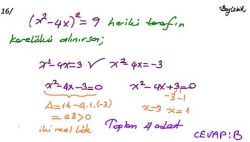 16/ (x²-4x)² = 9 her iki tarafın
karekökü alınırsa;
x²-4x=3 ✓ x²-4x=-3
x²-4x-3=0 x²-4x+3=0
Δ=16-4.1.(-3) -3 -1
=28>0 x=3 x=1
iki reel kök Toplam 4 adet
CEVAP:B